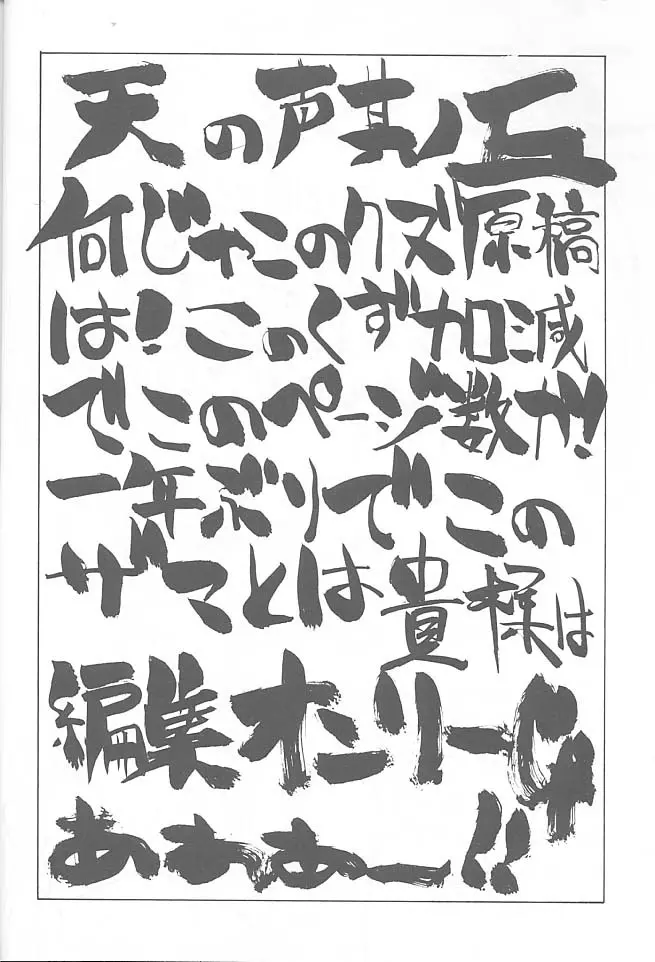 天の声其ノ五
何じゃこのクズ原稿
は!このくず加減
でこのページ数が!
一年ぶりでこの
ザマとは貴様は
編集オンリーじゃ
あぁぁー!!